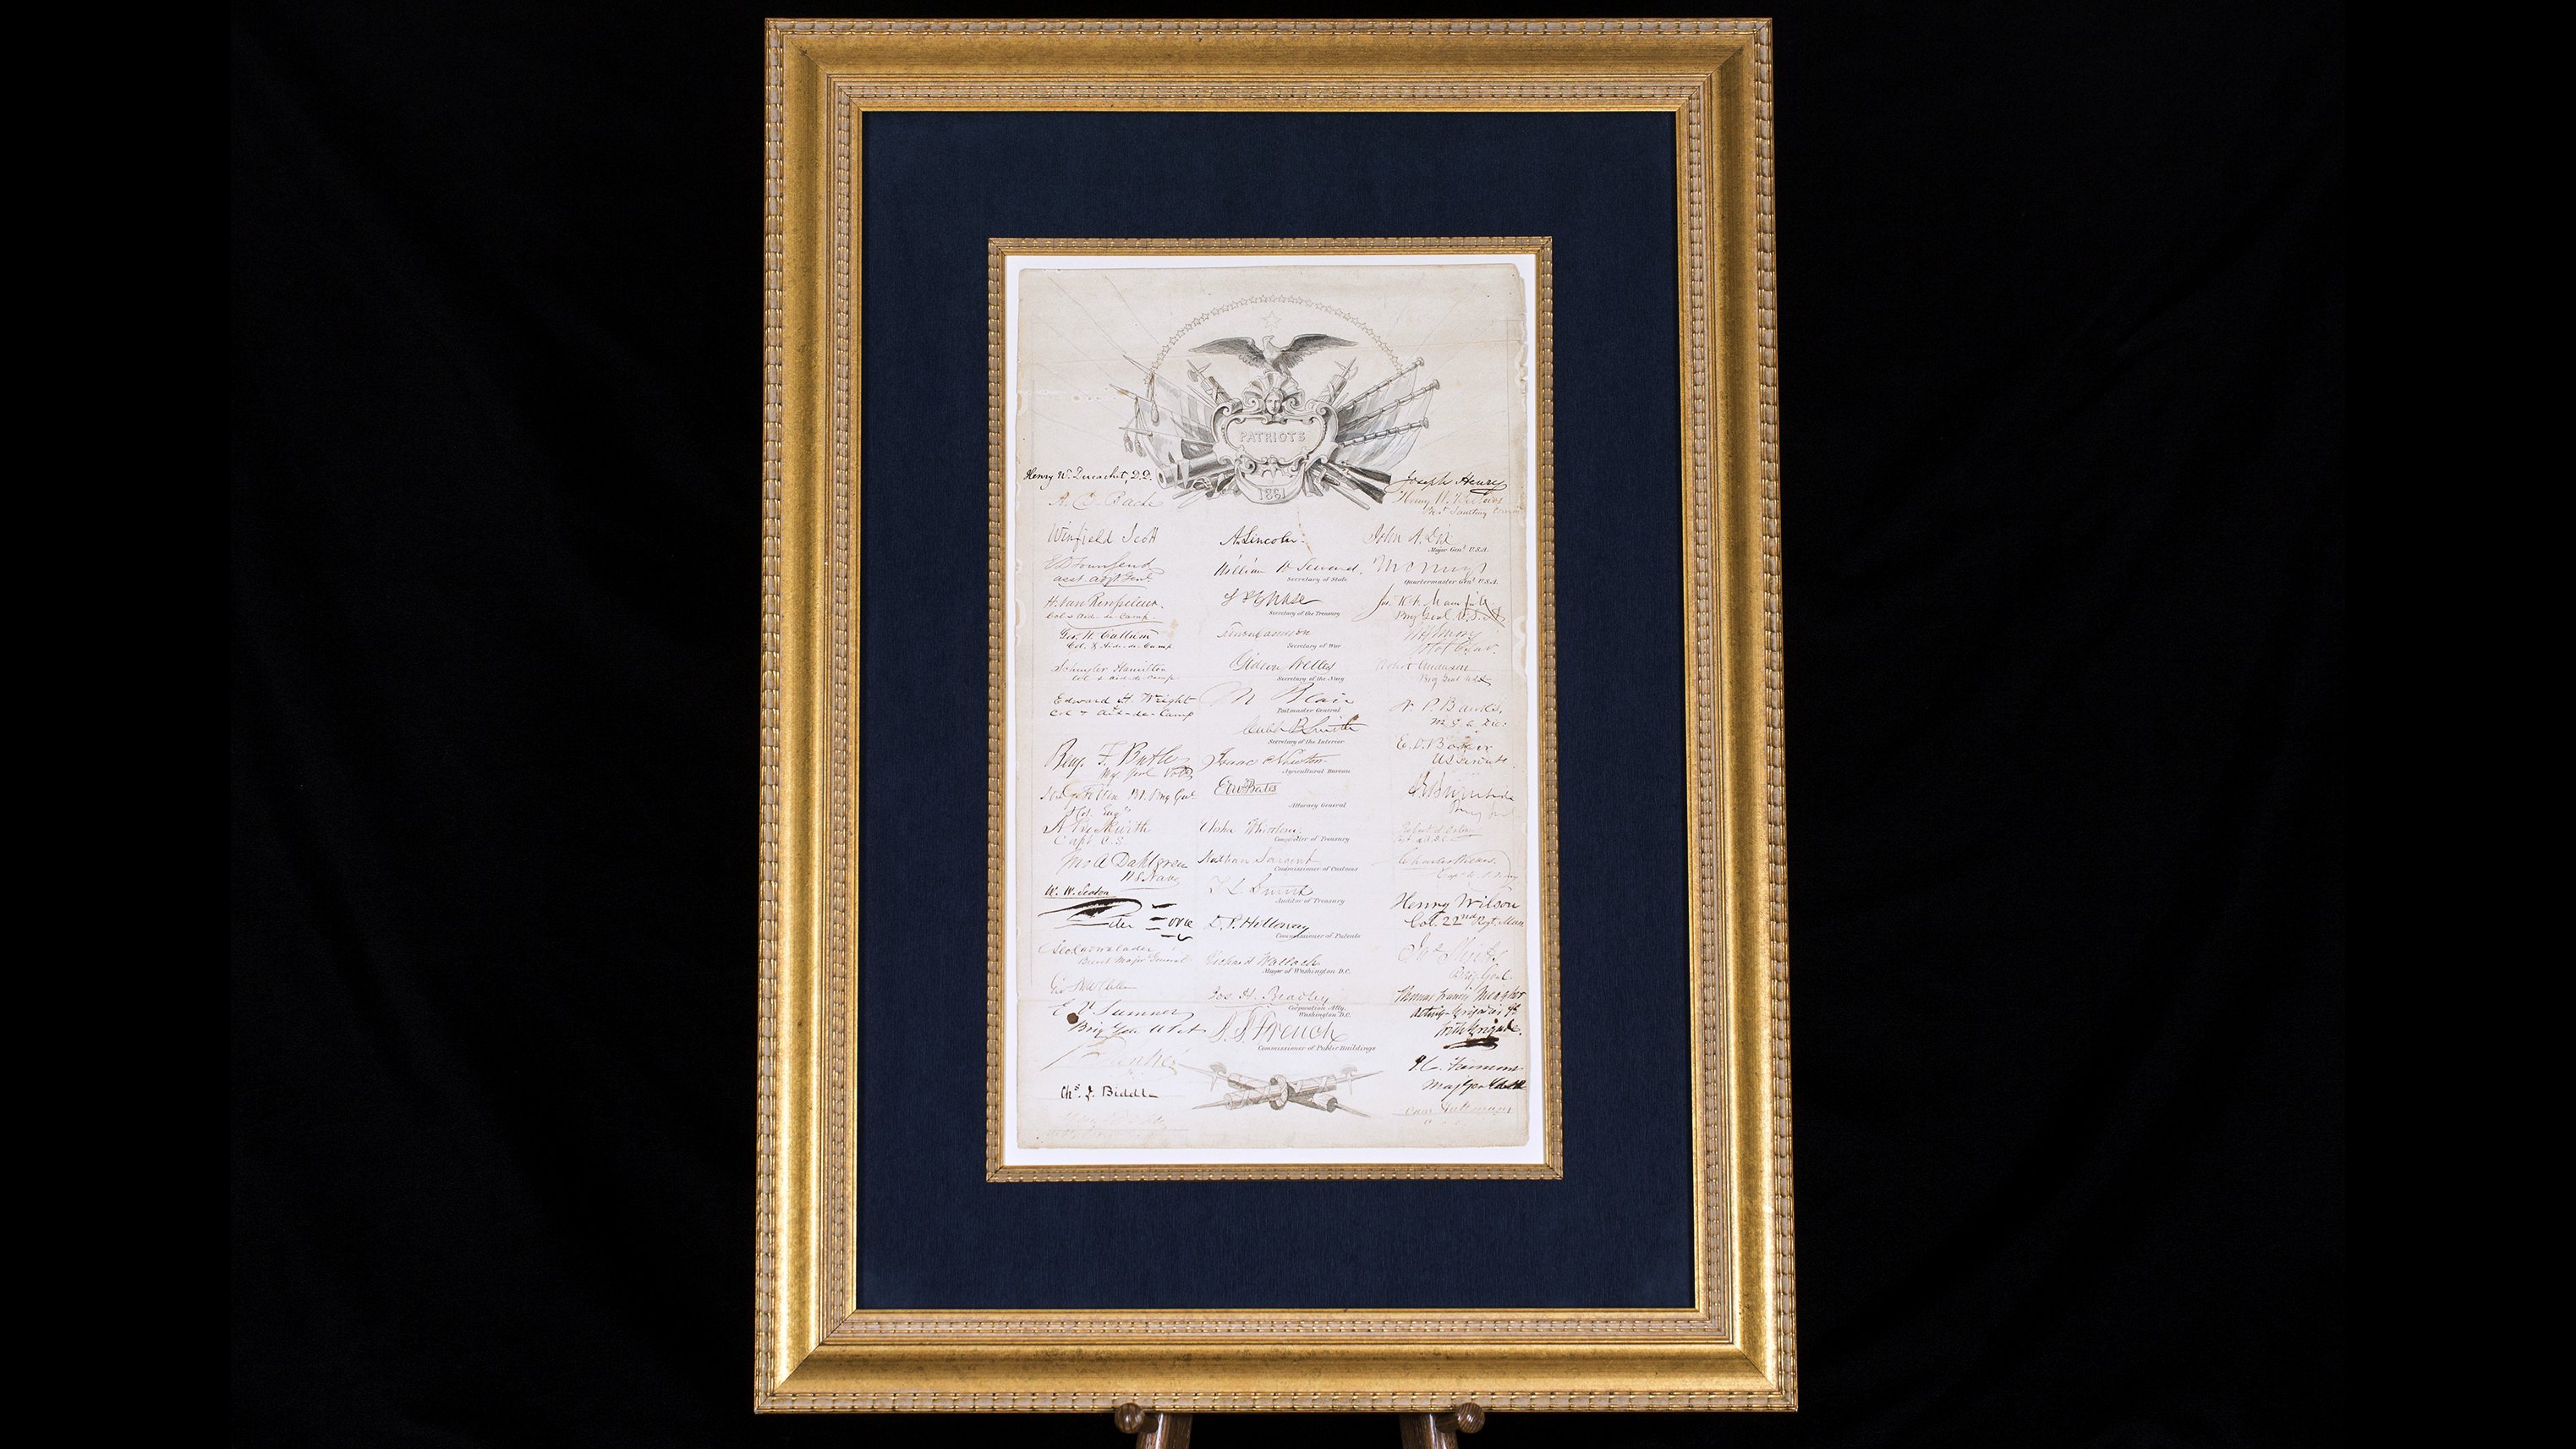 PATRIOTS
1861
Henry W. Ducachet, D.D.
A. D. Bache
Winfield Scott
E D Townsend
asst. adjt. Genl.
H. Van Rensselaer.
Col & Aid-de-Camp
Geo. W. Cullum
Col. & Aide-de-Camp
Schuyler Hamilton
Col & aid-de-camp
Edward H. Wright
Col & aid-de-Camp
Benj. F. Butler
Maj Genl Vols
Capt C.S.
Jno A Dahlgren
U.S. Navy
W. W. Seaton
Peter Force
Geo Cadwalader
Brevet Major General
E. V. Sumner
Brig Gen U S A
Chs. J. Biddle
A. Lincoln.
William H Seward,
Secretary of State
S P Chase
Secretary of the Treasury
Simon Cameron
Secretary of War
Gideon Welles
Secretary of the Navy
M Blair
Postmaster General
Caleb B Smith
Secretary of the Interior
Isaac Newton
Agricultural Bureau
Edw Bates
Attorney General
Elisha Whittlesey
Comptroller of Treasury
Nathan Sargent
Commissioner of Customs
Auditor of Treasury
D. P. Holloway
Commissioner of Patents
Richard Wallach
Mayor of Washington D.C.
Jos. H. Bradley
Corporation Atty.
Washington D.C.
B. B. French
Commissioner of Public Buildings
Joseph Henry
Henry W. Bellows
John A. Dix
Major Genl. U.S.A.
M C Meigs
Quartermaster Genl. U.S.A.
Jos. K. F. Mansfield
Brig Genl U.S.A
Robert Anderson
Brig Genl USA
N. P. Banks.
M. G. &
E. D. Baker
U.S. Senate.
A E Burnside
Brig Genl
Henry Wilson
Col. 22nd Regt. Mass
Brig Genl.
Thomas Francis Meagher
Acting Brigadier
Irish Brigade.
J. C. Fremont
Maj Gen USA